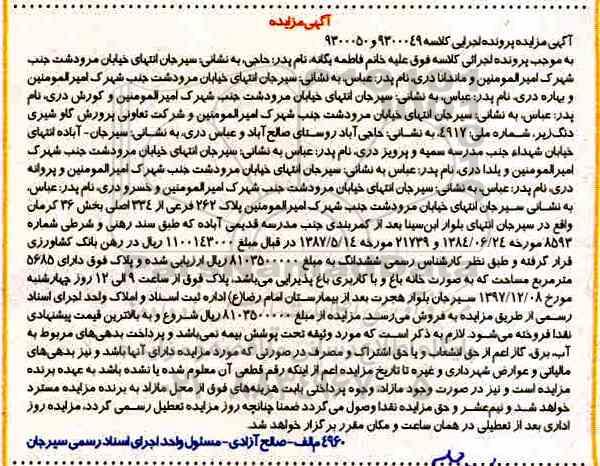 آگهی مزایده
آگهی مزایده پرونده اجرایی کلاسه ۹۳۰۰۰۴۹ و ۹۳۰۰۰۵۰
به موجب پرونده اجرائی کلاسه فوق علیه خانم فاطمه یگانه، نام پدر: حاجی، به نشانی: سیرجان انتهای خیابان مرودشت جنب
شهرک امیرالمومنین و ماندانا دری، نام پدر: عباس، به نشانی: سیرجان انتهای خیابان مرودشت جنب شهرک امیرالمومنین
و بهاره دری، نام پدر: عباس، به نشانی: سیرجان انتهای خیابان مرودشت جنب شهرک امیرالمومنین و کورش دری، نام
پدر: عباس، به نشانی: سیرجان انتهای خیابان مرودشت جنب شهرک امیرالمومنین و شرکت تعاونی پرورش گاو شیری
دنگ‌زیر، شماره ملی: ۴۹۱۷، به نشانی: حاجی‌آباد روستای صالح‌آباد و عباس دری، به نشانی: سیرجان- آباده انتهای
خیابان شهداء جنب مدرسه سمیه و پرویز دری، نام پدر: عباس به نشانی: سیرجان انتهای خیابان مرودشت جنب شهرک
امیرالمومنین و یلدا دری، نام پدر: عباس به نشانی: سیرجان انتهای خیابان مرودشت جنب شهرک امیرالمومنین و پروانه
دری، نام پدر: عباس، به نشانی: سیرجان انتهای خیابان مرودشت جنب شهرک امیرالمومنین و خسرو دری، نام پدر: عباس،
به نشانی سیرجان انتهای خیابان مرودشت جنب شهرک امیرالمومنین پلاک ۲۶۲ فرعی از ۳۳۴ اصلی بخش ۳۶ کرمان
واقع در سیرجان انتهای بلوار ابن‌سینا بعد از کمربندی جنب مدرسه قدیمی آباده که طبق سند رهنی و شرطی شماره
۸۵۹۳ مورخه ۱۳۸۴/۰۶/۲۴ و ۲۱۷۳۹ مورخه ۱۳۸۷/۵/۱۴ در قبال مبلغ ۱۱۰۰۱۴۳۰۰۰ ریال در رهن بانک کشاورزی
قرار گرفته و طبق نظر کارشناس رسمی ششدانگ به مبلغ ۸۱۰۳۵۰۰۰۰۰ ریال ارزیابی شده و پلاک فوق دارای ۵۶۸۵
مترمربع مساحت که به صورت خانه باغ و با کاربری باغ پذیرایی می‌باشد، پلاک فوق از ساعت ۹ الی ۱۲ روز چهارشنبه
مورخ ۱۳۹۷/۱۲/۰۸ سیرجان بلوار هجرت بعد از بیمارستان امام رضا(ع) اداره ثبت اسناد و املاک واحد اجرای اسناد
رسمی از طریق مزایده به فروش می‌رسد. مزایده از مبلغ ۸۱۰۳۵۰۰۰۰۰ ریال شروع و به بالاترین قیمت پیشنهادی
نقدا فروخته می‌شود. لازم به ذکر است که مورد وثیقه تحت پوشش بیمه نمی‌باشد و پرداخت بدهی‌های مربوط به
آب، برق، گاز اعم از حق انشعاب و یا حق اشتراک و مصرف در صورتی که مورد مزایده دارای آنها باشد و نیز بدهی‌های
مالیاتی و عوارض شهرداری و غیره تا تاریخ مزایده اعم از اینکه رقم قطعی آن معلوم شده یا نشده باشد به عهده برنده
مزایده است و نیز در صورت وجود مازاد، وجوه پرداختی بابت هزینه‌های فوق از محل مازاد به برنده مزایده مسترد
خواهد شد و نیم‌عشر و حق مزایده نقدا وصول می‌گردد ضمنا چنانچه روز مزایده تعطیل رسمی گردد، مزایده روز
اداری بعد از تعطیلی در همان ساعت و مکان مقرر برگزار خواهد شد.
۴۹۶۰ م‌الف- صالح آزادی- مسئول واحد اجرای اسناد رسمی سیرجان